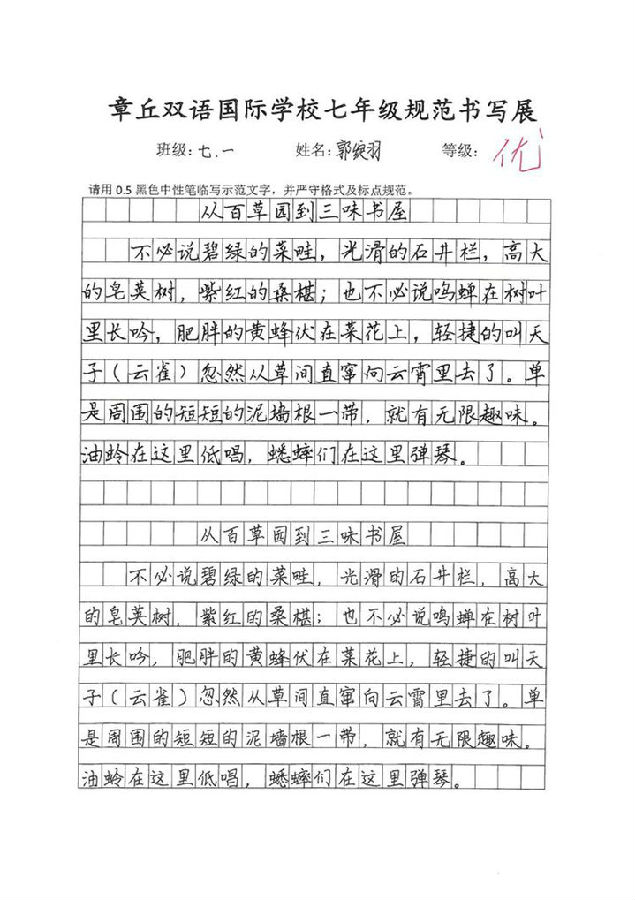 章丘双语国际学校七年级规范书写展
班级: 七.一 姓名: 郭婉羽 等级: 优
请用 0.5 黑色中性笔临写示范文字，并严守格式及标点规范。
从百草园到三味书屋
不必说碧绿的菜畦，光滑的石井栏，高大
的皂荚树，紫红的桑椹；也不必说鸣蝉在树叶
里长吟，肥胖的黄蜂伏在菜花上，轻捷的叫天
子（云雀）忽然从草间直窜向云霄里去了。单
是周围的短短的泥墙根一带，就有无限趣味。
油蛉在这里低唱，蟋蟀们在这里弹琴。
从百草园到三味书屋
不必说碧绿的菜畦，光滑的石井栏，高大
的皂荚树，紫红的桑椹；也不必说鸣蝉在树叶
里长吟，肥胖的黄蜂伏在菜花上，轻捷的叫天
子（云雀）忽然从草间直窜向云霄里去了。单
是周围的短短的泥墙根一带，就有无限趣味。
油蛉在这里低唱，蟋蟀们在这里弹琴。